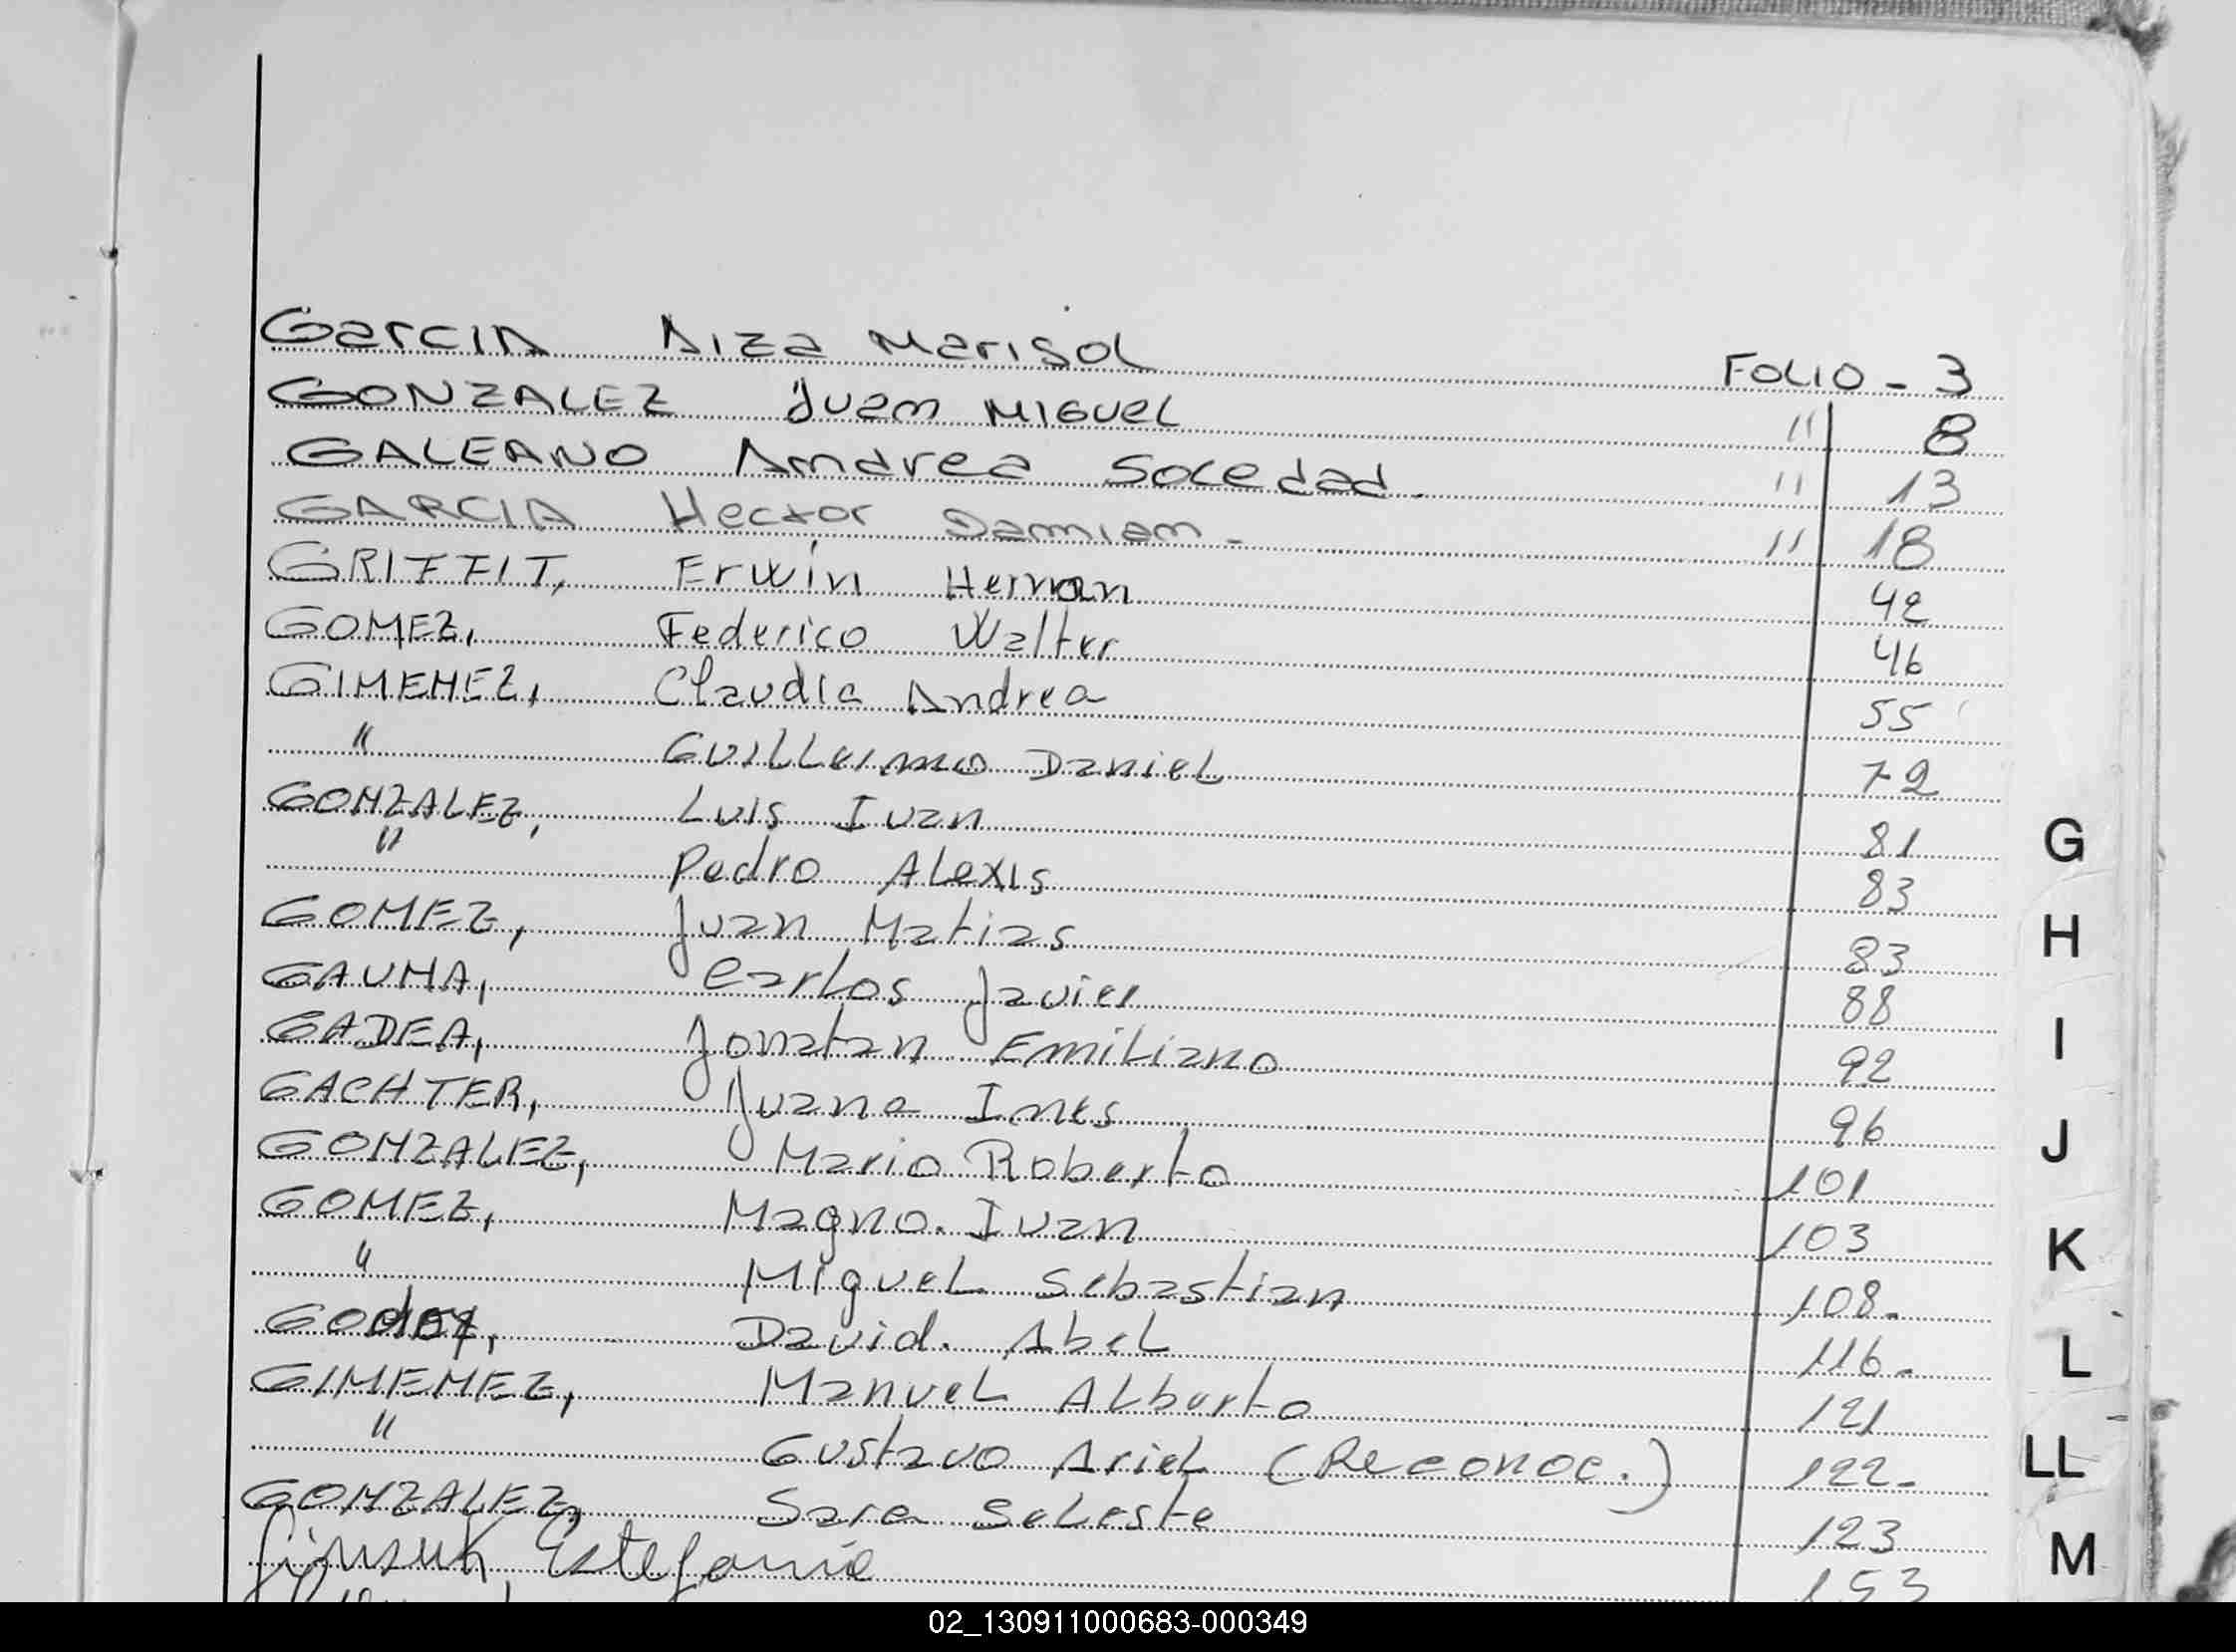 GarcIA Aiza Marisol FOLIO - 3
GONZALEZ Juan MIGUEL " 8
GALEANO Andrea Soledad. " 13
GARCIA Hector Damian - " 18
GRIFFIT, Erwin Hernan 42
GOMEZ, Federico Walter 46
GIMENEZ, Claudia Andrea 55
" Guillermo Daniel 72
GONZALEZ, Luis Ivan 81
" Pedro Alexis 83
GOMEZ, Juan Matias 83
GAUNA, Carlos Javier 88
GADEA, Jonatan Emiliano 92
GACHTER, Juana Ines 96
GONZALEZ, Mario Roberto 101
GOMEZ, Magno. Ivan 103
" Miguel Sebastian 108-
GOdoy, David. Abel 116-
GIMENEZ, Manuel Alberto 121
" Gustavo Ariel (Reconoc.) 122-
GONZALEZ, Sara Seleste 123
Estefania 153
G
H
I
J
K
L
LL
M
02_130911000683-000349